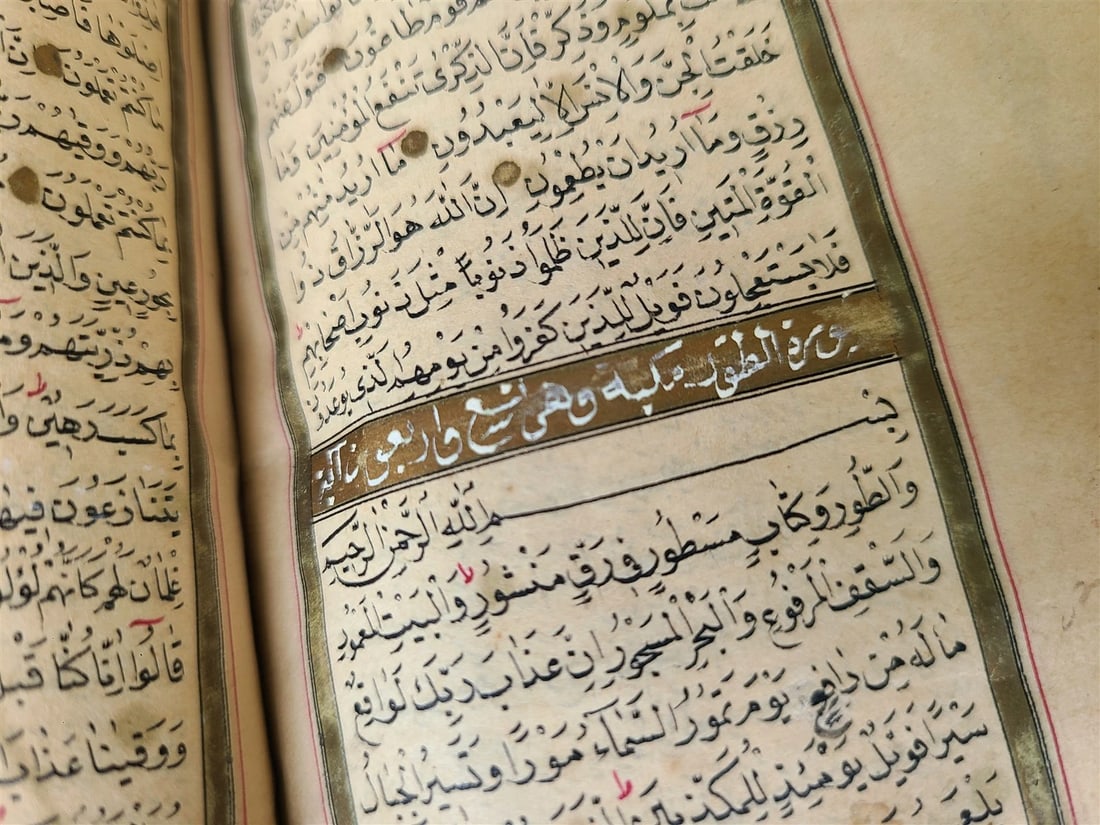 قَوْمٌ طَاغُونَ فَتَوَلَّ عَنْهُمْ
بِمَلُومٍ وَذَكِّرْ فَاِنَّ الذِّكْرٰى تَنْفَعُ الْمُؤْمِنِينَ وَمَا
خَلَقْتُ الْجِنَّ وَالْاِنْسَ اِلَّا لِيَعْبُدُونِ مَا اُرِيدُ مِنْهُمْ مِنْ
رِزْقٍ وَمَا اُرِيدُ اَنْ يُطْعِمُونِ اِنَّ اللّٰهَ هُوَ الرَّزَّاقُ ذُو ا
الْقُوَّةِ الْمَتِينُ فَاِنَّ لِلَّذِينَ ظَلَمُوا ذَنُوبًا مِثْلَ ذَنُوبِ اَصْحَابِهِمْ
فَلَا يَسْتَعْجِلُونِ فَوَيْلٌ لِلَّذِينَ كَفَرُوا مِنْ يَوْمِهِمُ الَّذِي يُوعَدُونَ
سورة الطور مكية وهي تسع واربعون اية
بِسْمِ اللّٰهِ الرَّحْمٰنِ الرَّحِيمِ
وَالطُّورِ وَكِتَابٍ مَسْطُورٍ فِي رَقٍّ مَنْشُورٍ وَالْبَيْتِ الْمَعْمُورِ
وَالسَّقْفِ الْمَرْفُوعِ وَالْبَحْرِ الْمَسْجُورِ اِنَّ عَذَابَ رَبِّكَ لَوَاقِعٌ
مَا لَهُ مِنْ دَافِعٍ يَوْمَ تَمُورُ السَّمَاءُ مَوْرًا وَتَسِيرُ الْجِبَالُ
سَيْرًا فَوَيْلٌ يَوْمَئِذٍ لِلْمُكَذِّبِينَ الَّذِينَ
فَاصْبِرُوا
كُنْتُمْ تَعْمَلُونَ اِنَّ
رَبُّهُمْ وَوَقٰيهُمْ
كُنْتُمْ تَعْمَلُونَ
بِحُورٍ عِينٍ وَالَّذِينَ
بِهِمْ ذُرِّيَّتَهُمْ وَمَا
بِمَا كَسَبَ رَهِينٌ وَا
يَتَنَازَعُونَ فِيهَا
غِلْمَانٌ لَهُمْ كَاَنَّهُمْ لُؤْلُؤٌ
قَالُوا اِنَّا كُنَّا قَبْلُ
وَوَقٰينَا عَذَابَ